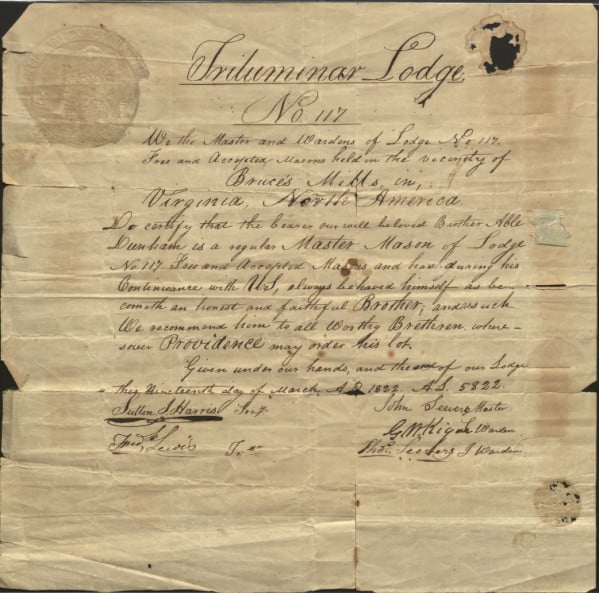 Triluminar Lodge.
No. 117
We the Master and Wardens of Lodge No. 117.
Free and Accepted Masons held in the vicinity of
Bruce's Mills, in,
Virginia, North America.
Do certify that the bearer our well beloved Brother Able
Dunham is a regular Master Mason of Lodge
No 117 Free and Accepted Masons and has during his
Continuance with US, always behaved himself as be-
cometh an honest and faithful Brother, and as such
We recommend him to all Worthy Brethren, where-
soever Providence may order his lot.
Given under our hands, and the seal of our Lodge
this Nineteenth day of March A.D. 1822. A.L. 5822.
Sutton I Harris Secy. John Seevers Master
Warden
Fred. Lewis Tr Seevers J Warden